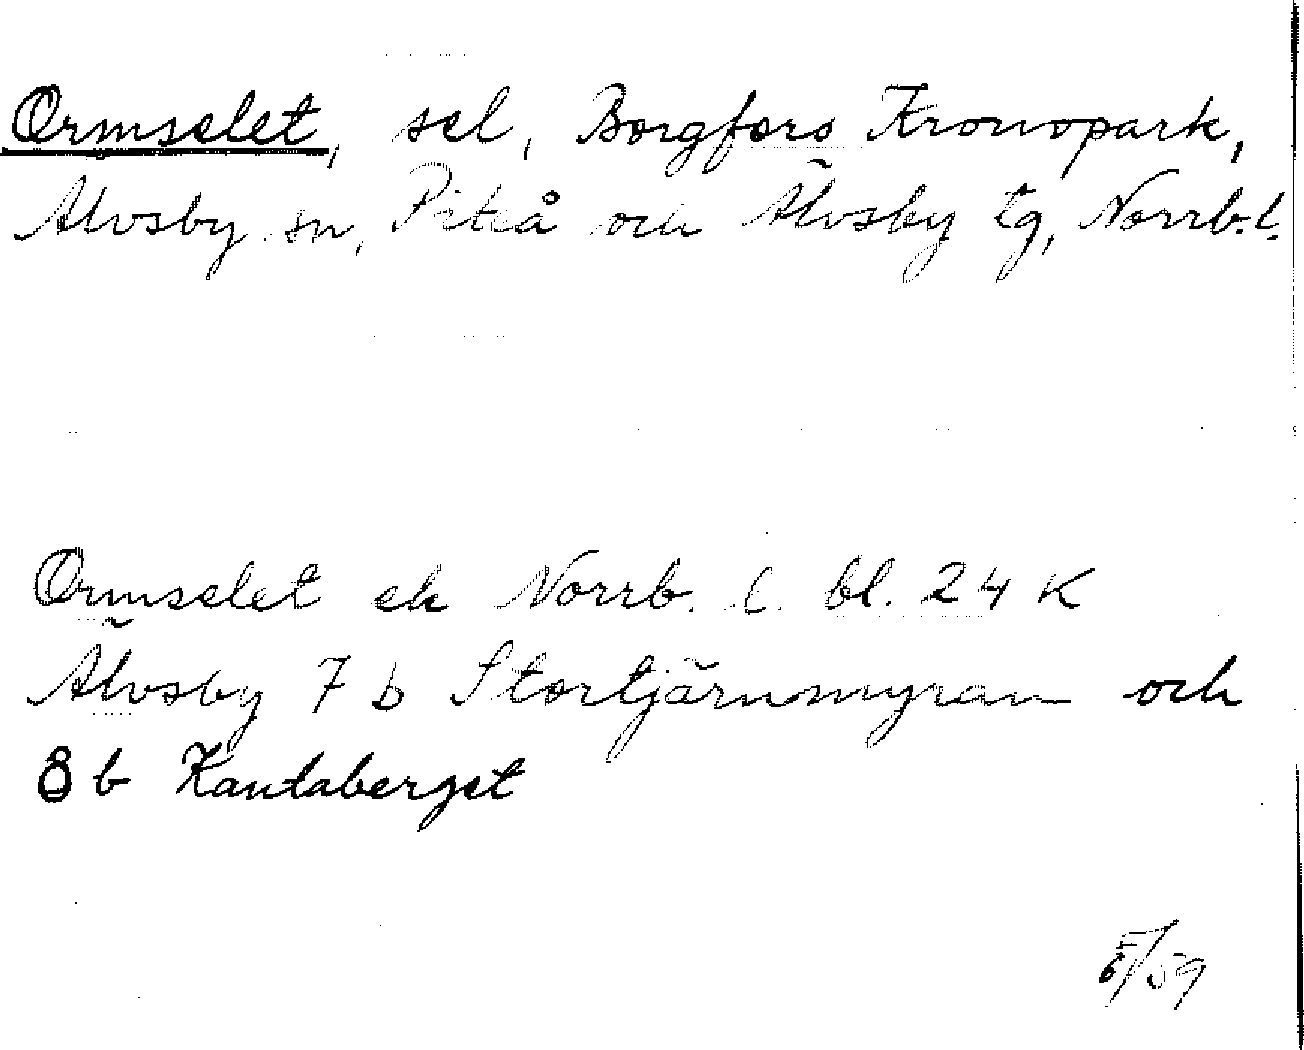 Ormselet, sel, Borgfors Kronopark,
Älvsby sn, Piteå och Älvsby tg, Norrb. l.
Ormselet ek Norrb. l. bl. 24 K
Älvsby 7 b Stortjärnmyran och
8 b Kantaberget
/59